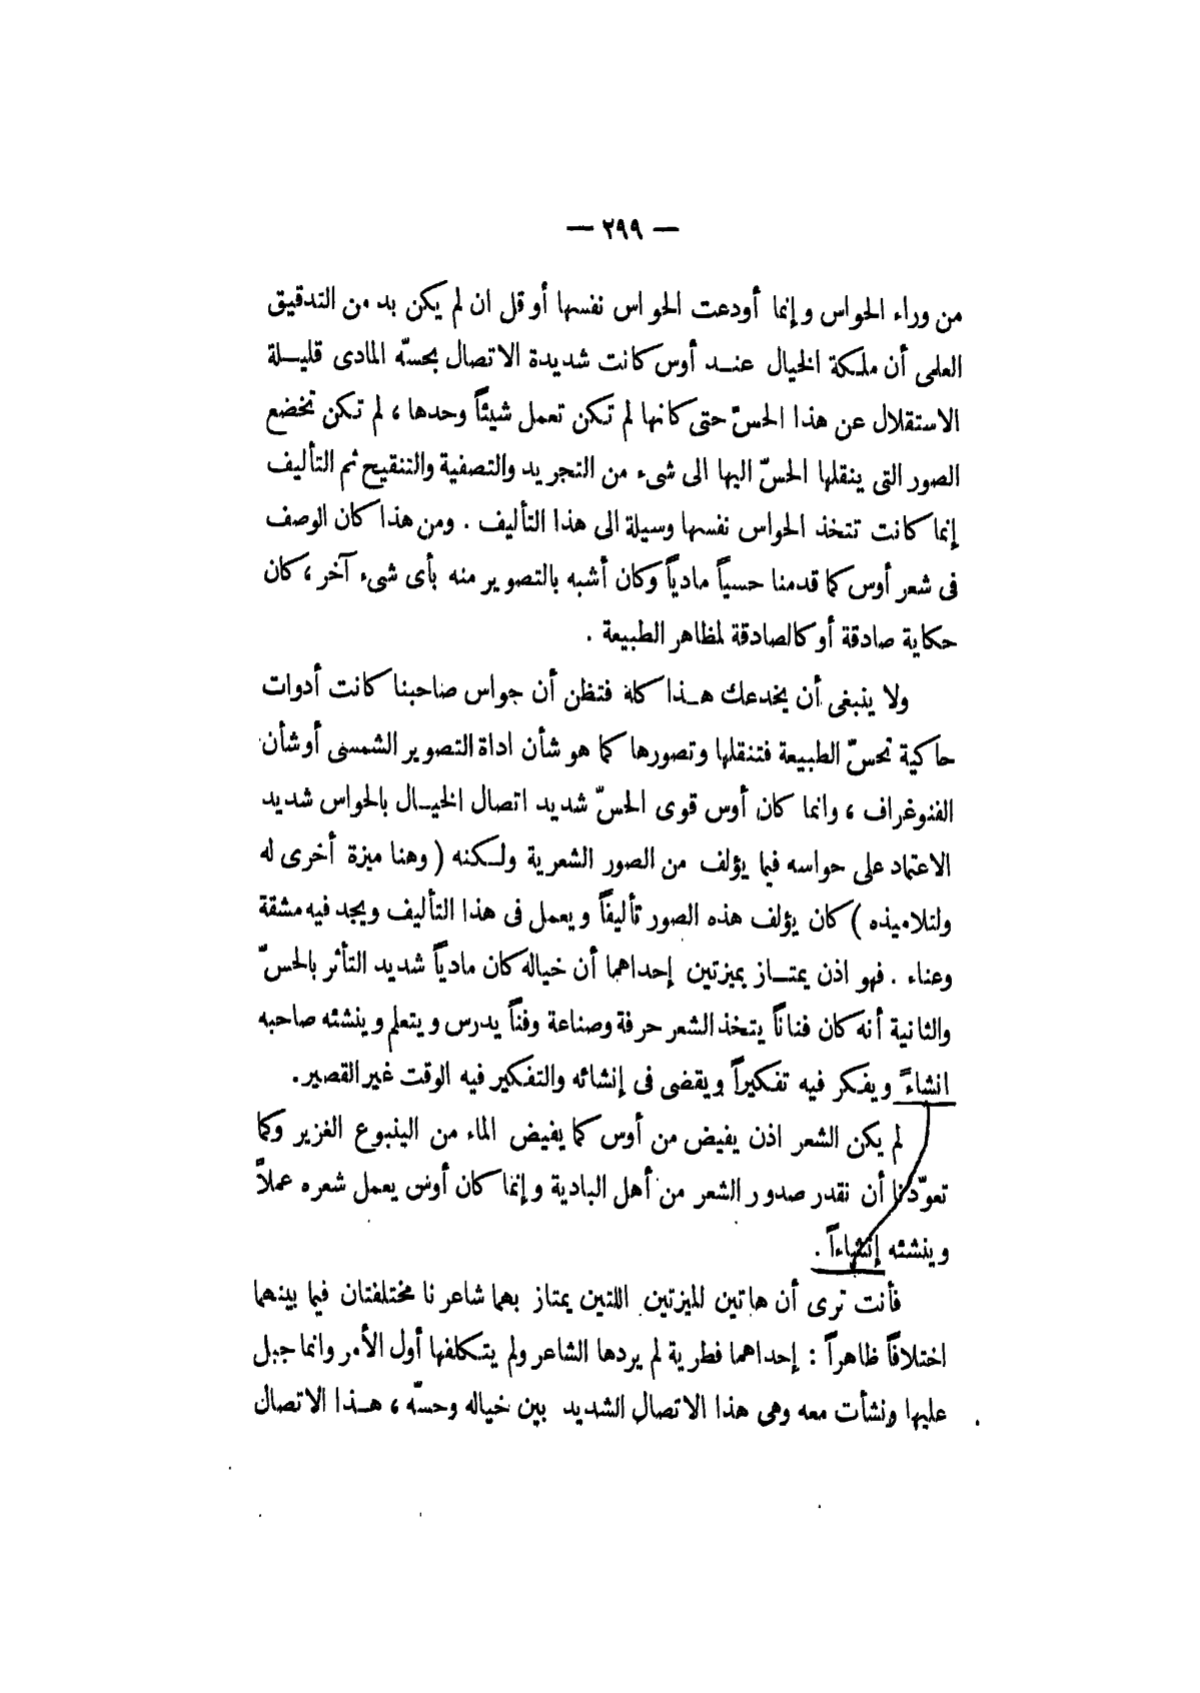 — ٢٩٩ —
من وراء الحواس وإنما أودعت الحواس نفسها أو قل ان لم يكن بد من التدقيق
العلمى أن ملكة الخيال عنـد أوس كانت شديدة الاتصال بحسّه المادى قليـلة
الاستقلال عن هذا الحسّ حتى كانها لم تكن تعمل شيئاً وحدها ، لم تكن تخضع
الصور التى ينقلها الحسّ اليها الى شىء من التجريد والتصفية والتنقيح ثم التأليف
إنما كانت تتخذ الحواس نفسها وسيلة الى هذا التأليف . ومن هذا كان الوصف
فى شعر أوس كما قدمنا حسياً مادياً وكان أشبه بالتصوير منه بأى شىء آخر ، كان
حكاية صادقة أو كالصادقة لمظاهر الطبيعة .
ولا ينبغى أن يخدعك هـذا كله فتظن أن حواس صاحبنا كانت أدوات
حاكية تحسّ الطبيعة فتنقلها وتصورها كما هو شأن اداة التصوير الشمسى أو شأن
الفنوغراف ، وانما كان أوس قوى الحسّ شديد اتصال الخيـال بالحواس شديد
الاعتماد على حواسه فيما يؤلف من الصور الشعرية ولـكنه ( وهنا ميزة أخرى له
ولتلاميذه ) كان يؤلف هذه الصور تأليفاً ويعمل فى هذا التأليف ويجد فيه مشقة
وعناء . فهو اذن يمتـاز بميزتين إحداهما أن خياله كان مادياً شديد التأثر بالحسّ
والثانية أنه كان فناناً يتخذ الشعر حرفة وصناعة وفناً يدرس ويتعلم وينشئه صاحبه
انشاءً ويفكر فيه تفكيراً ويقضى فى إنشائه والتفكير فيه الوقت غير القصير .
لم يكن الشعر اذن يفيض من أوس كما يفيض الماء من الينبوع الغزير وكما
تعوّدنا أن نقدر صدور الشعر من أهل البادية وإنما كان أوس يعمل شعره عملاً
وينشئه إنشاءاً .
فأنت ترى أن هاتين الميزتين اللتين يمتاز بهما شاعرنا مختلفتان فيما بينهما
اختلافاً ظاهراً : إحداهما فطرية لم يردها الشاعر ولم يتكلفها أول الأمر وانما جبل
عليها ونشأت معه وهى هذا الاتصال الشديد بين خياله وحسّه ، هـذا الاتصال